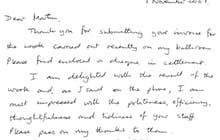 1 November 2001.
Dear Martin,
Thank you for submitting your invoice for
the work carried out recently on my bathroom.
Please find enclosed a cheque in settlement.
I am delighted with the result of the
work and, as I said on the phone, I am
most impressed with the politeness, efficiency,
thoughtfulness and tidiness of your staff.
Please pass on my thanks to them.